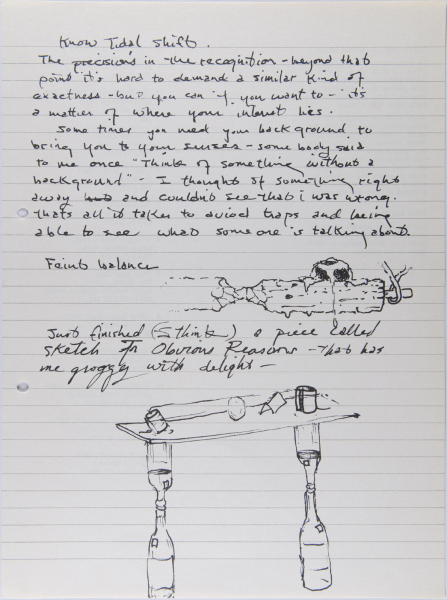 Know Tidal Shift.
The precision's in the recognition - beyond that
point it's hard to demand a similar kind of
exactness - but you can if you want to - it's
a matter of where your interest lies.
Some times you need your background to
bring you to your senses - some body said
to me once "Think of something without a
background" - I thought of something right
away and couldn't see that i was wrong.
thats all it takes to aviod traps and being
able to see what someone is talking about.
Faint balance
Just finished (I think) a piece called
Sketch For Obvious Reasons - That has
me groggy with delight -